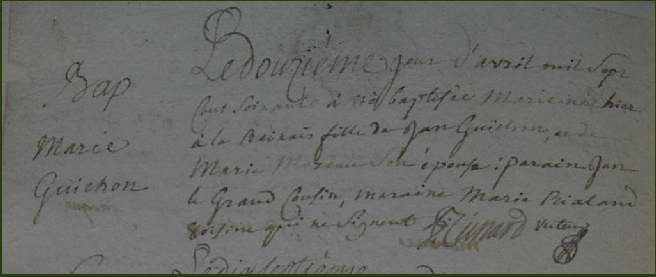 Bap
Marie
Guichon
Le douzième jour d'avril mil sept
cent soixante a été baptisée Marie née hier
à la fille de Jan Guichon, et de
Marie Moreau son épouse : parain Jan
le Grand Cousin, maraine Marie Rialand
voisine qui ne signent
Le dix septième